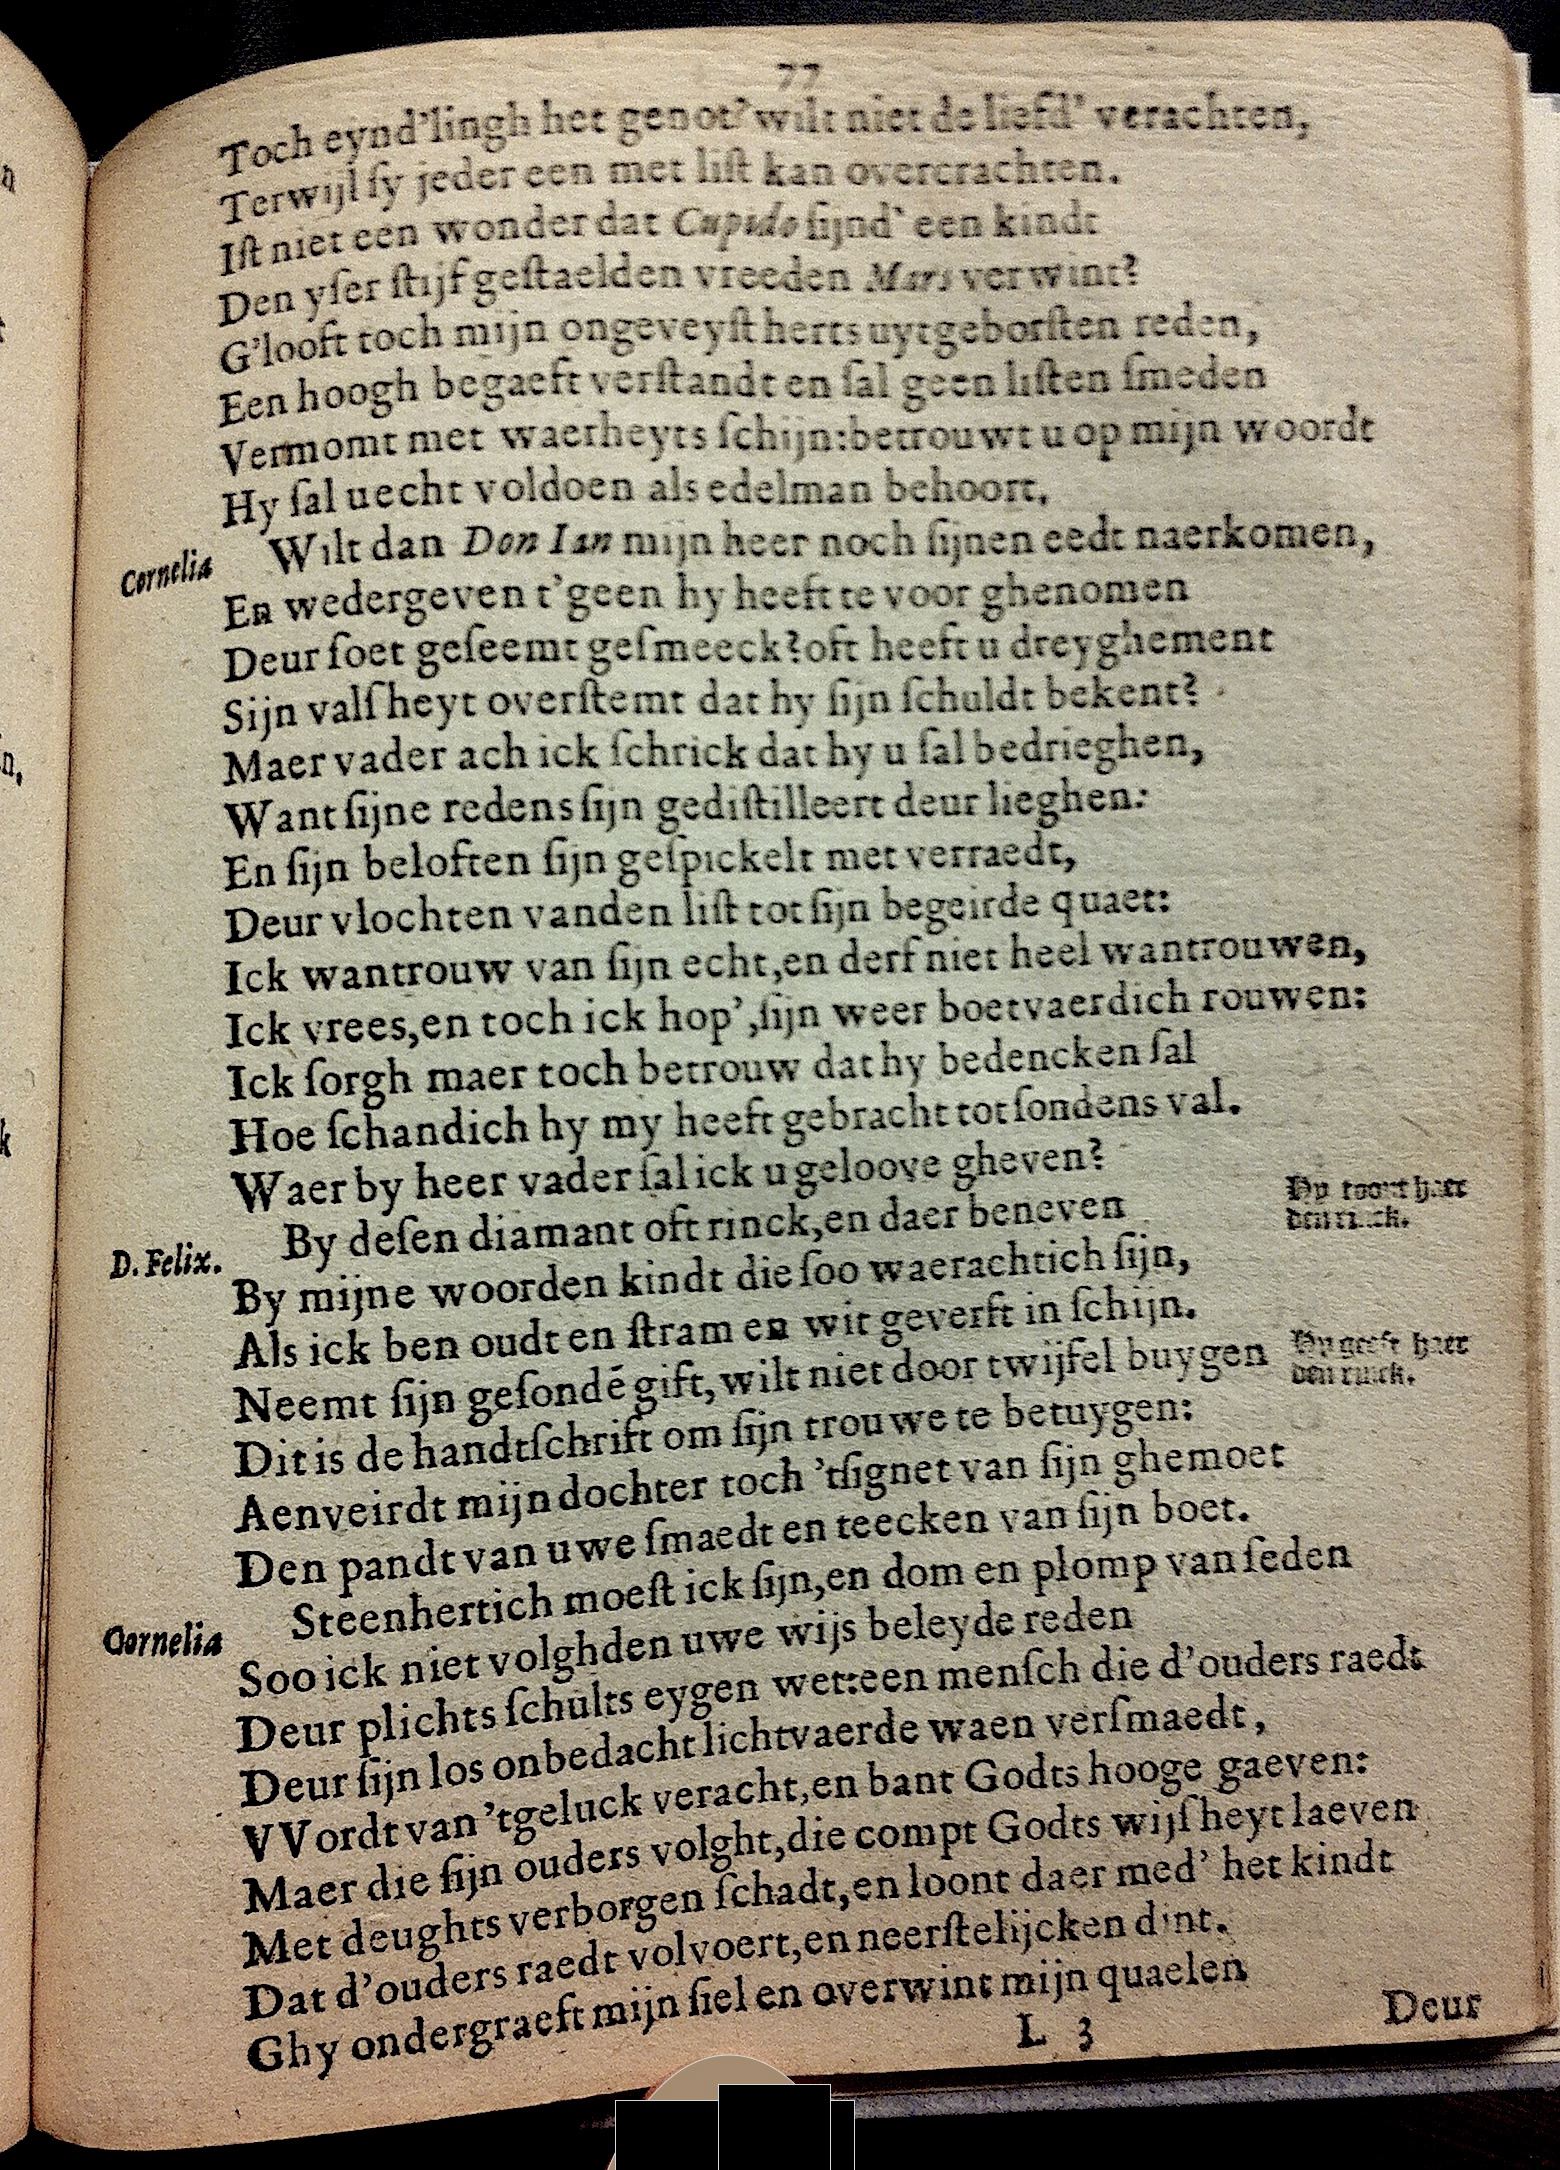 77
Toch eynd'lingh het genot? wilt niet de liefd' verachten,
Terwijl ſy jeder een met liſt kan overcrachten.
Iſt niet een wonder dat Cupido ſijnd' een kindt
Den yſer ſtijf geſtaelden vreeden Mars verwint?
G'looft toch mijn ongeveyſt herts uytgeborſten reden,
Een hoogh begaeft verſtandt en ſal geen liſten ſmeden
Vermomt met waerheyts ſchijn: betrouwt u op mijn woordt
Hy ſal u echt voldoen als edelman behoort.
Cornelia Wilt dan Don Ian mijn heer noch ſijnen eedt naerkomen,
En wedergeven t'geen hy heeft te voor ghenomen
Deur ſoet geſeemt geſmeeck? oft heeft u dreyghement
Sijn valſheyt overſtemt dat hy ſijn ſchuldt bekent?
Maer vader ach ick ſchrick dat hy u ſal bedrieghen,
Want ſijne redens ſijn gediſtilleert deur lieghen:
En ſijn beloften ſijn geſpickelt met verraedt,
Deur vlochten vanden liſt tot ſijn begeirde quaet:
Ick wantrouw van ſijn echt, en derf niet heel wantrouwen,
Ick vrees, en toch ick hop', ſijn weer boetvaerdich rouwen:
Ick ſorgh maer toch betrouw dat hy bedencken ſal
Hoe ſchandich hy my heeft gebracht tot ſondens val.
Waer by heer vader ſal ick u geloove gheven?
D. Felix. By deſen diamant oft rinck, en daer beneven
Hy toont haer
den rinck.
By mijne woorden kindt die ſoo waerachtich ſijn,
Als ick ben oudt en ſtram en wit geverft in ſchijn.
Neemt ſijn geſondé gift, wilt niet door twijfel buygen
Hy geeft haer
den rinck.
Dit is de handtſchrift om ſijn trouwe te betuygen:
Aenveirdt mijn dochter toch 'tſignet van ſijn ghemoet
Den pandt van uwe ſmaedt en teecken van ſijn boet.
Cornelia Steenhertich moeſt ick ſijn, en dom en plomp van ſeden
Soo ick niet volghden uwe wijs beleyde reden
Deur plichts ſchults eygen wet: een menſch die d'ouders raedt
Deur ſijn los onbedacht lichtvaerde waen verſmaedt,
VVordt van 'tgeluck veracht, en bant Godts hooge gaeven:
Maer die ſijn ouders volght, die compt Godts wijſheyt laeven
Met deughts verborgen ſchadt, en loont daer med' het kindt
Dat d'ouders raedt volvoert, en neerſtelijcken dint.
Ghy ondergraeft mijn ſiel en overwint mijn quaelen
L 3
Deur